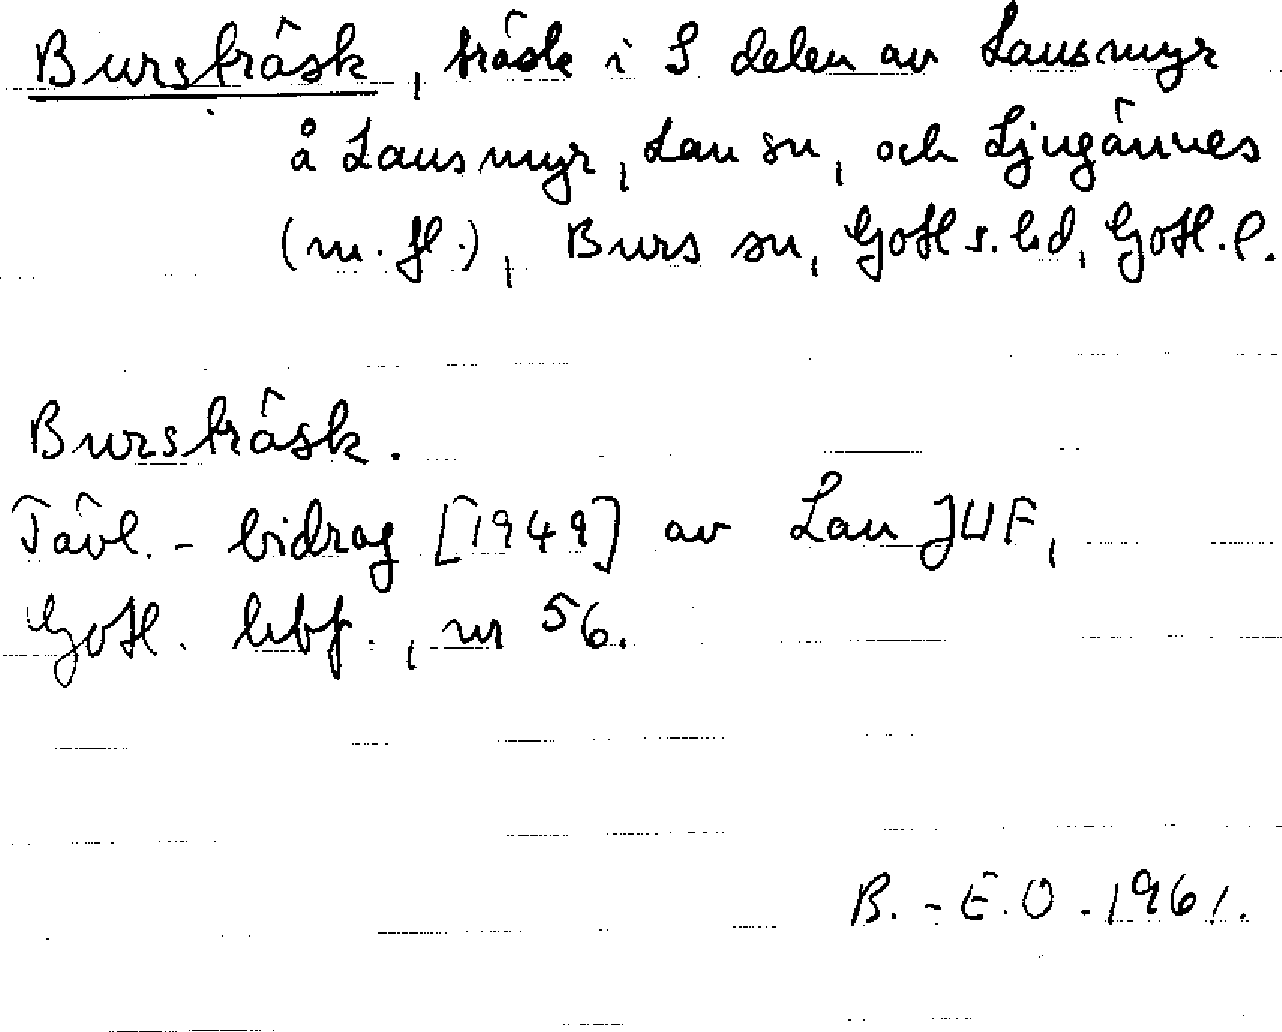 Bursträsk, träsk i S delen av Lausmyr
å Lausmyr, Lau sn, och Ljugännes
(m. fl.), Burs sn, Gotl s. hd, Gotl. l.
Bursträsk.
Tävl.-bidrag [1949] av Lau JUF,
Gotl. hbf., nr 56.
B.-E. O. 1961.